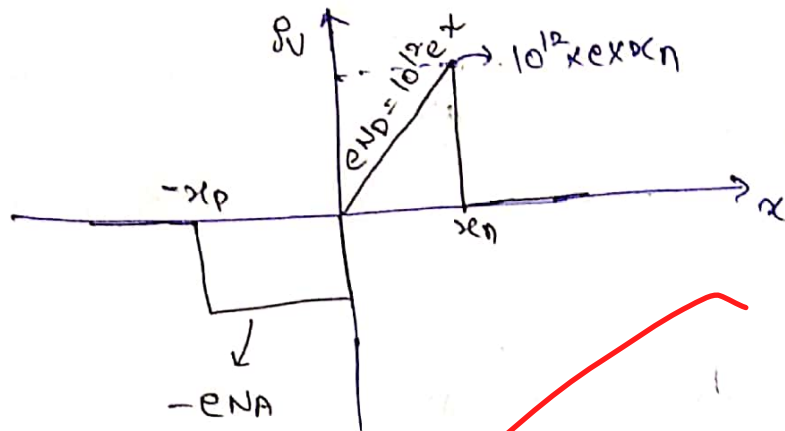 ρv
eND = 10^12 e x
10^12 × e × xn
-xp
xn
x
-eNA